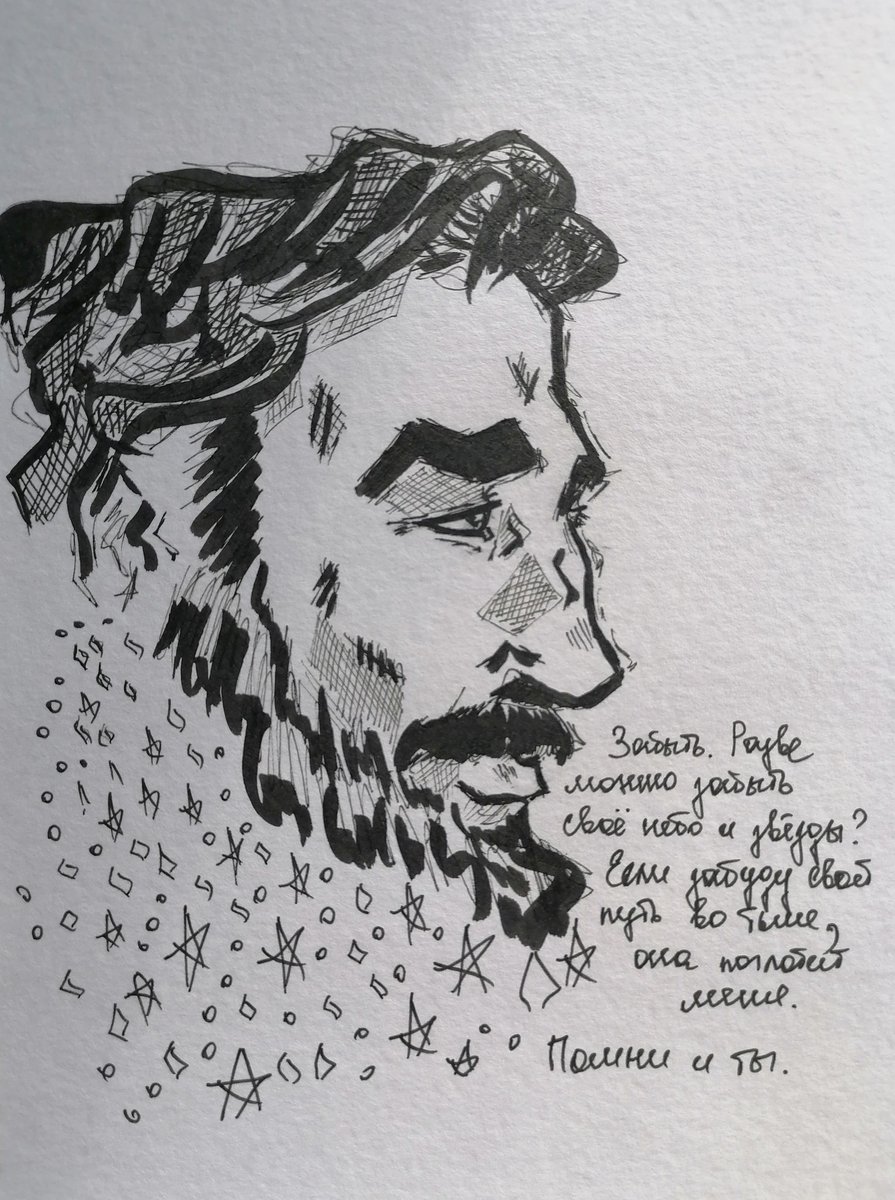 Забыть. Разве
можно забыть
своё небо и звёзды?
Если забуду свой
путь во тьме,
она поглотит
меня.
Помни и ты.